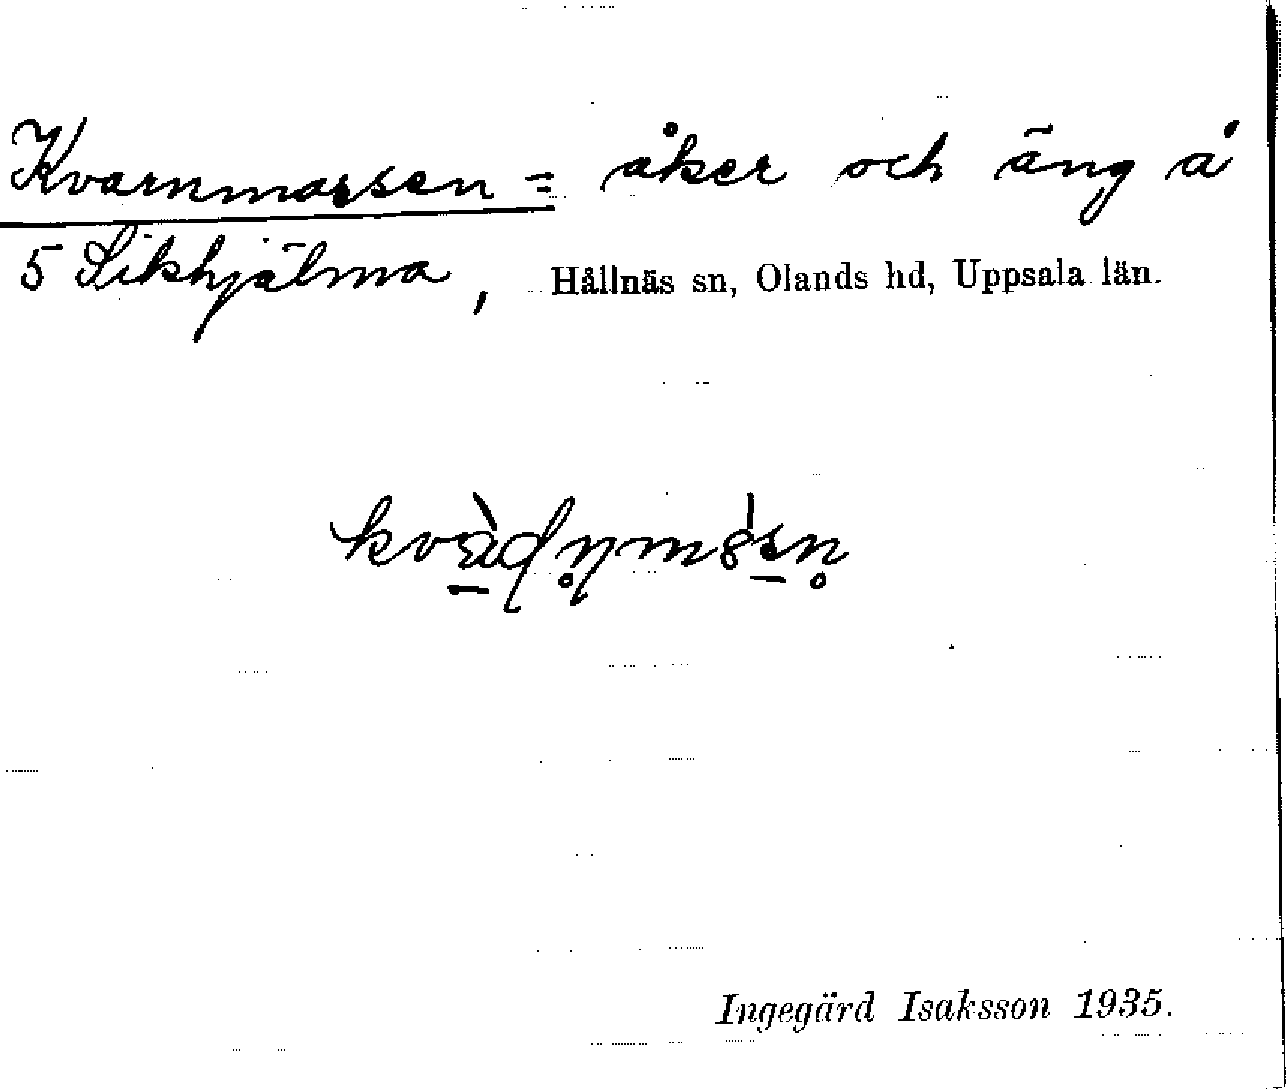 Kvarnmossen = åker och äng å
5 Sikhjälma, Hållnäs sn, Olands hd, Uppsala län.
Ingegärd Isaksson 1935.